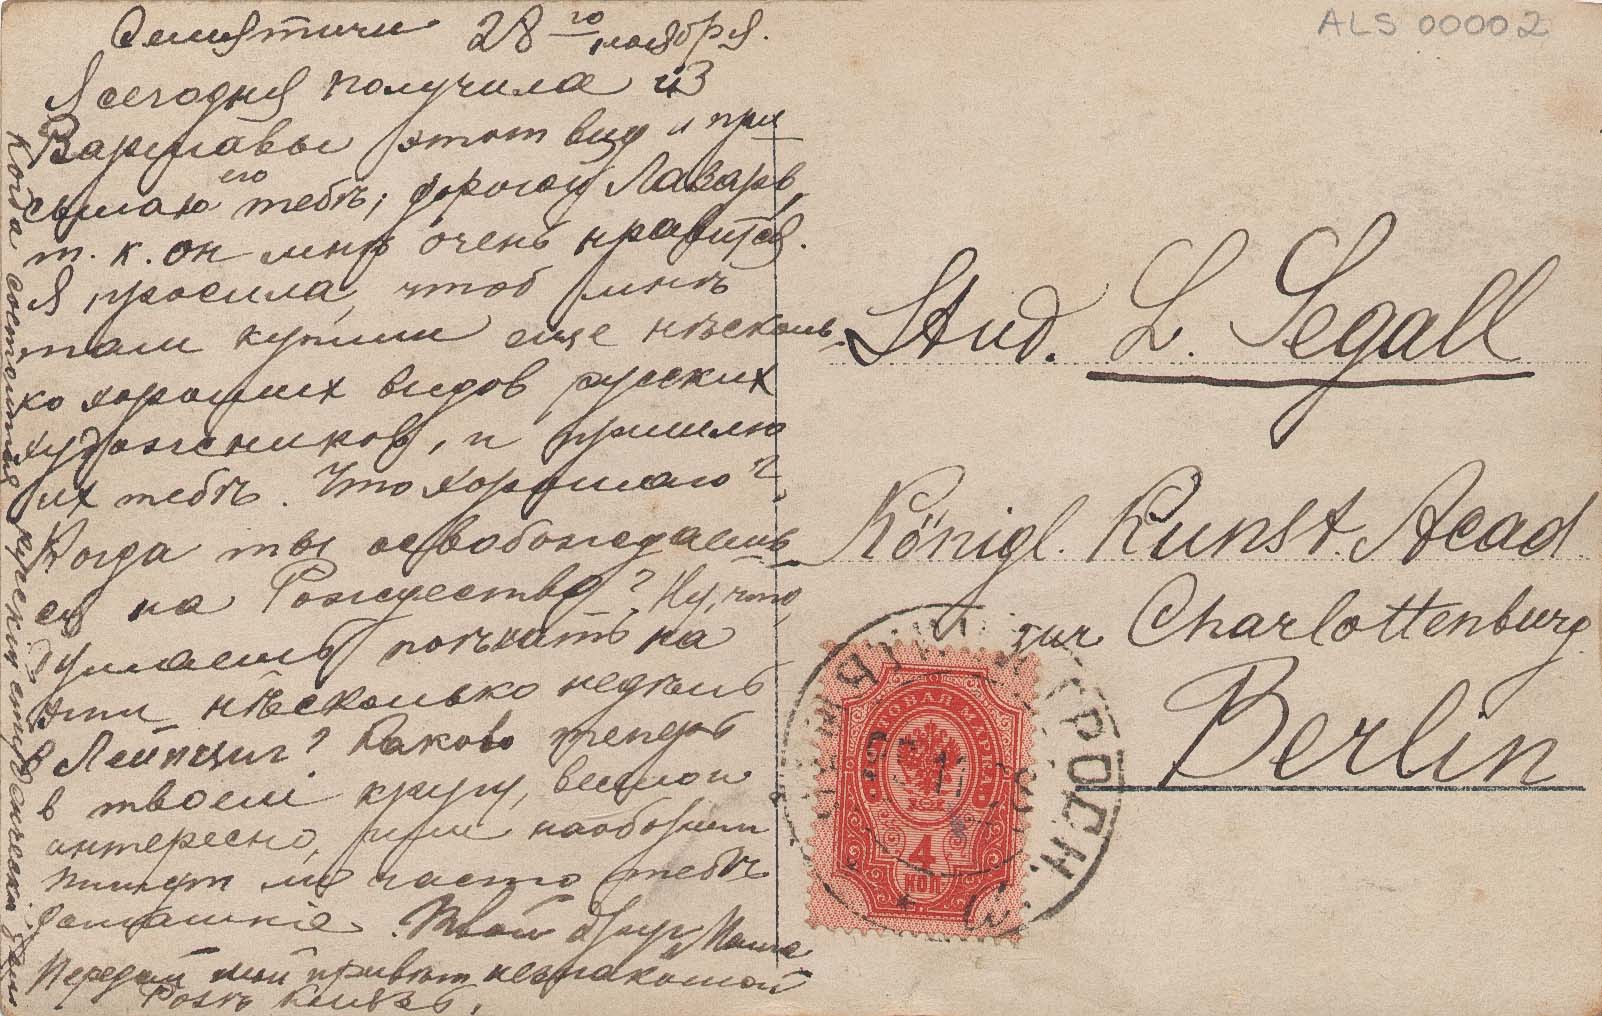 ALS 00002
Семятичи 28го ноября.
Я сегодня получила из
Варшавы этот вид и при
сылаю его тебѣ, дорогой Лазарь,
т. к. он мнѣ очень нравится.
Я просила, чтоб мнѣ
там купили еще нѣсколь-
ко хороших видов русских
художников, и пришлю
их тебѣ. Что хорошаго?
Когда ты освобождаешь-
ся на Рождество? Ну, что,
думаешь поѣхать на
эти нѣсколько недѣль
в Лейпциг? Каково теперь
в твоем кругу, весело и
интересно, или наоборот
Пишут ли часто тебѣ
домашніе. Твой друг Маша
Передай мой привѣт незнакомой
Розѣ
Когда состоится русский студенческій
Stud. L. Segall
Königl. Kunst. Acad.
zur Charlottenburg
Berlin
ПОЧТОВАЯ МАРКА
4
КОП
ГРОДН.